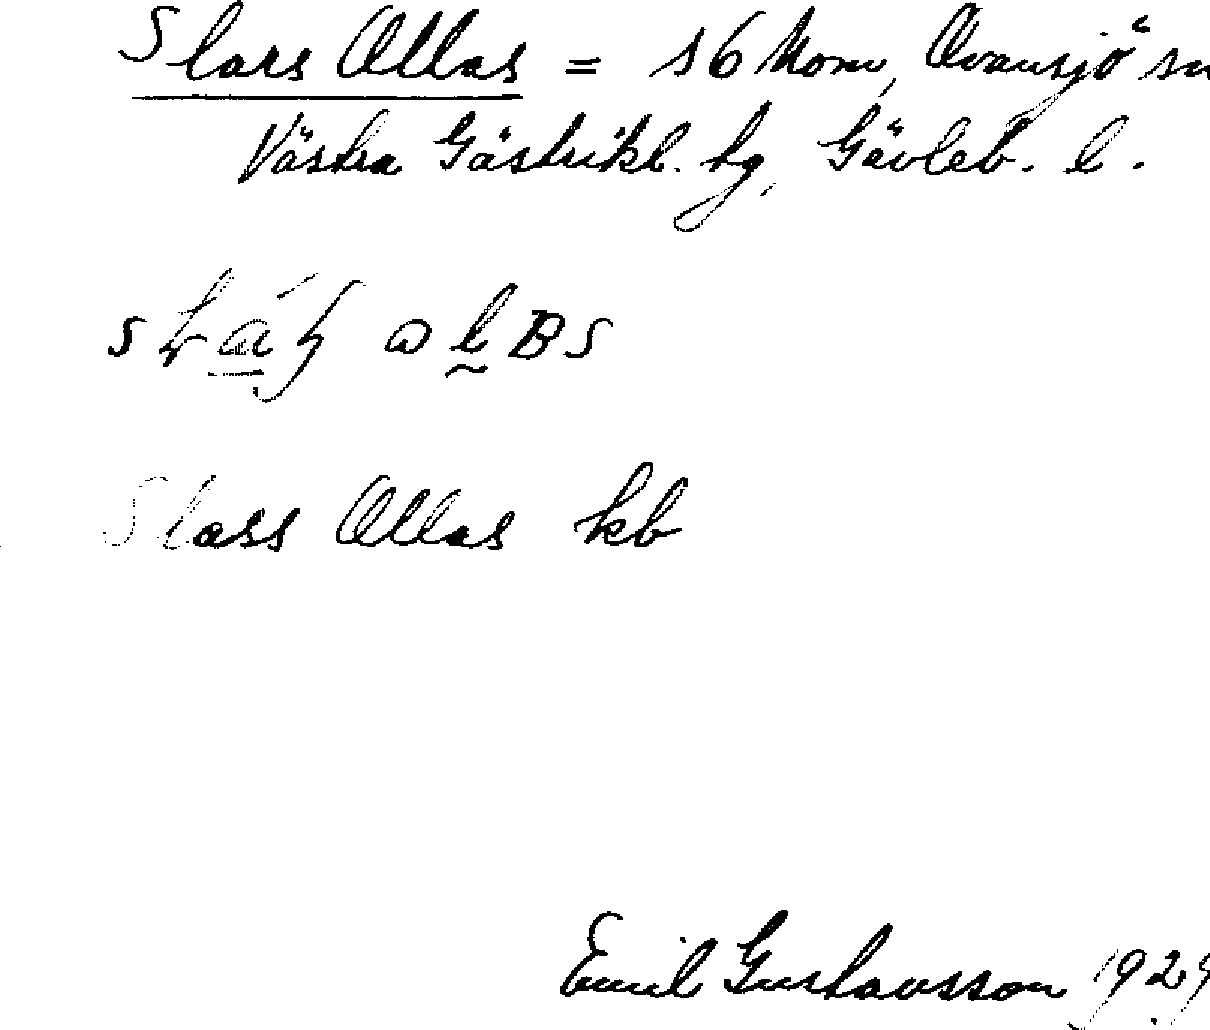 Slars Ollas = 16 Mom, Ovansjö sn
Västra Gästrikl. hg, Gävleb. l.
Slass Ollas kb
Emil Gustavsson